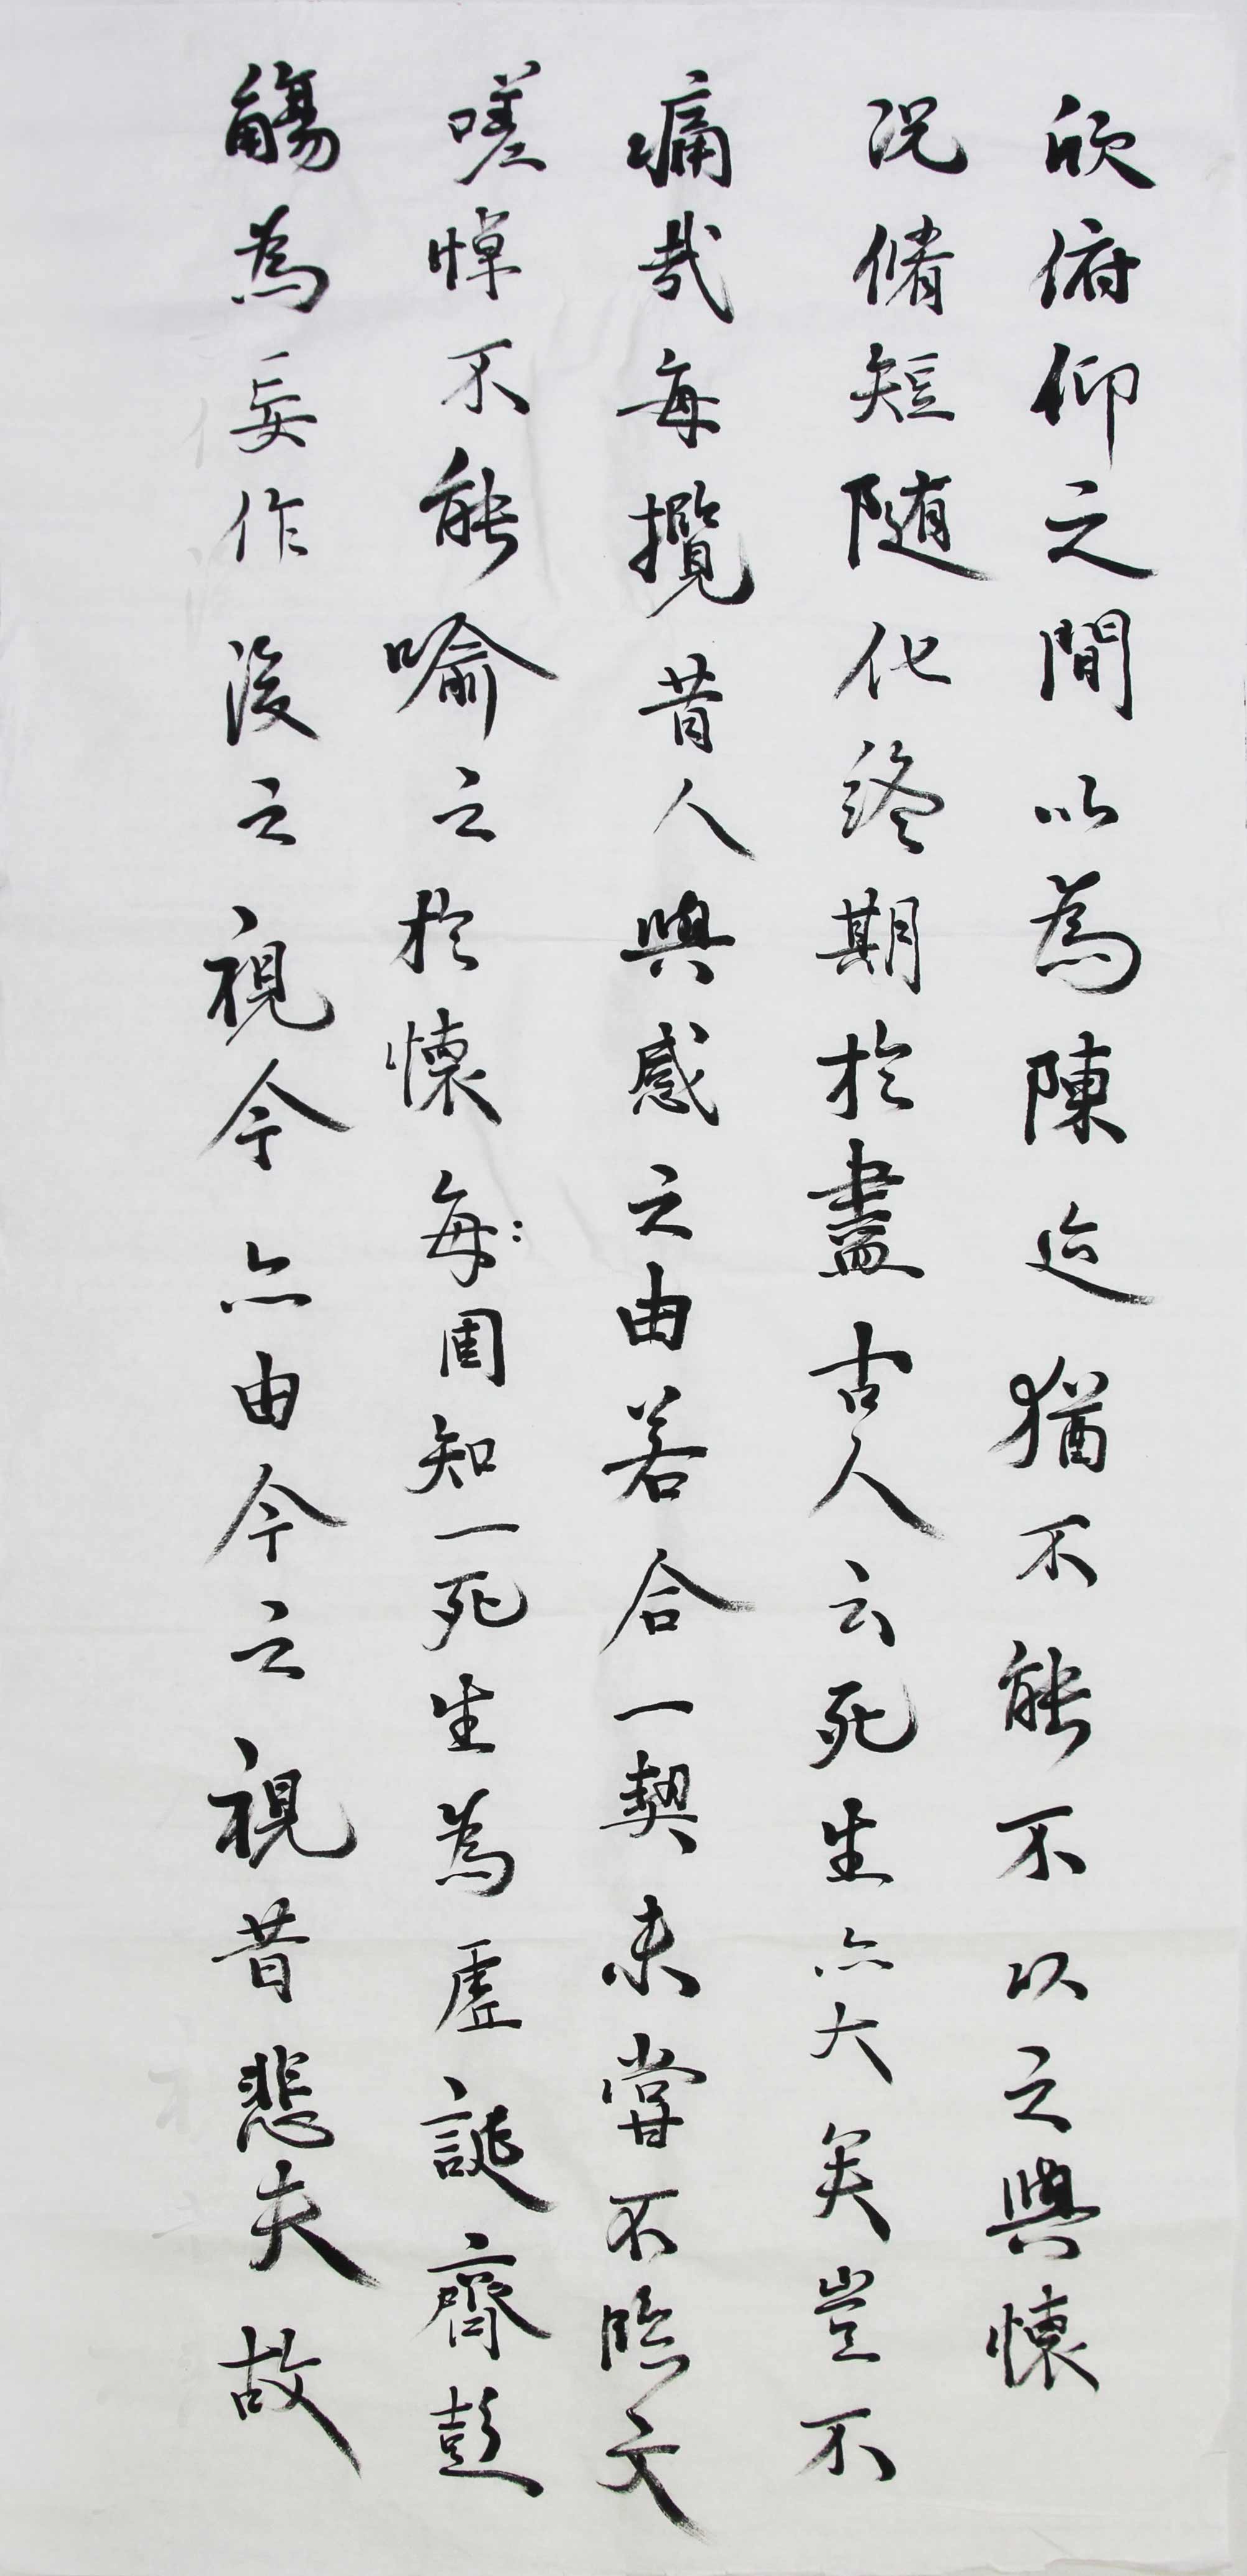 欣俯仰之間以為陳迹猶不能不以之興懷
況脩短随化終期於盡古人云死生亦大矣豈不
痛哉每攬昔人興感之由若合一契未嘗不臨文
嗟悼不能喻之於懷每固知一死生為虛誕齊彭
殤為妄作後之視今亦由今之視昔悲夫故